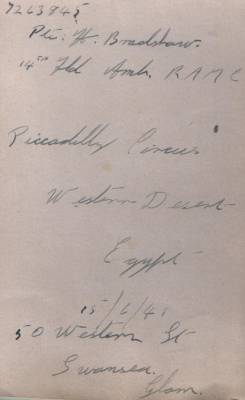 7263945
Pte. H. Bradshaw.
14th Fld Amb. R A M C
Piccadilly Circus
Western Desert
Egypt
15/6/41
50 Western St
Swansea.
Glam.